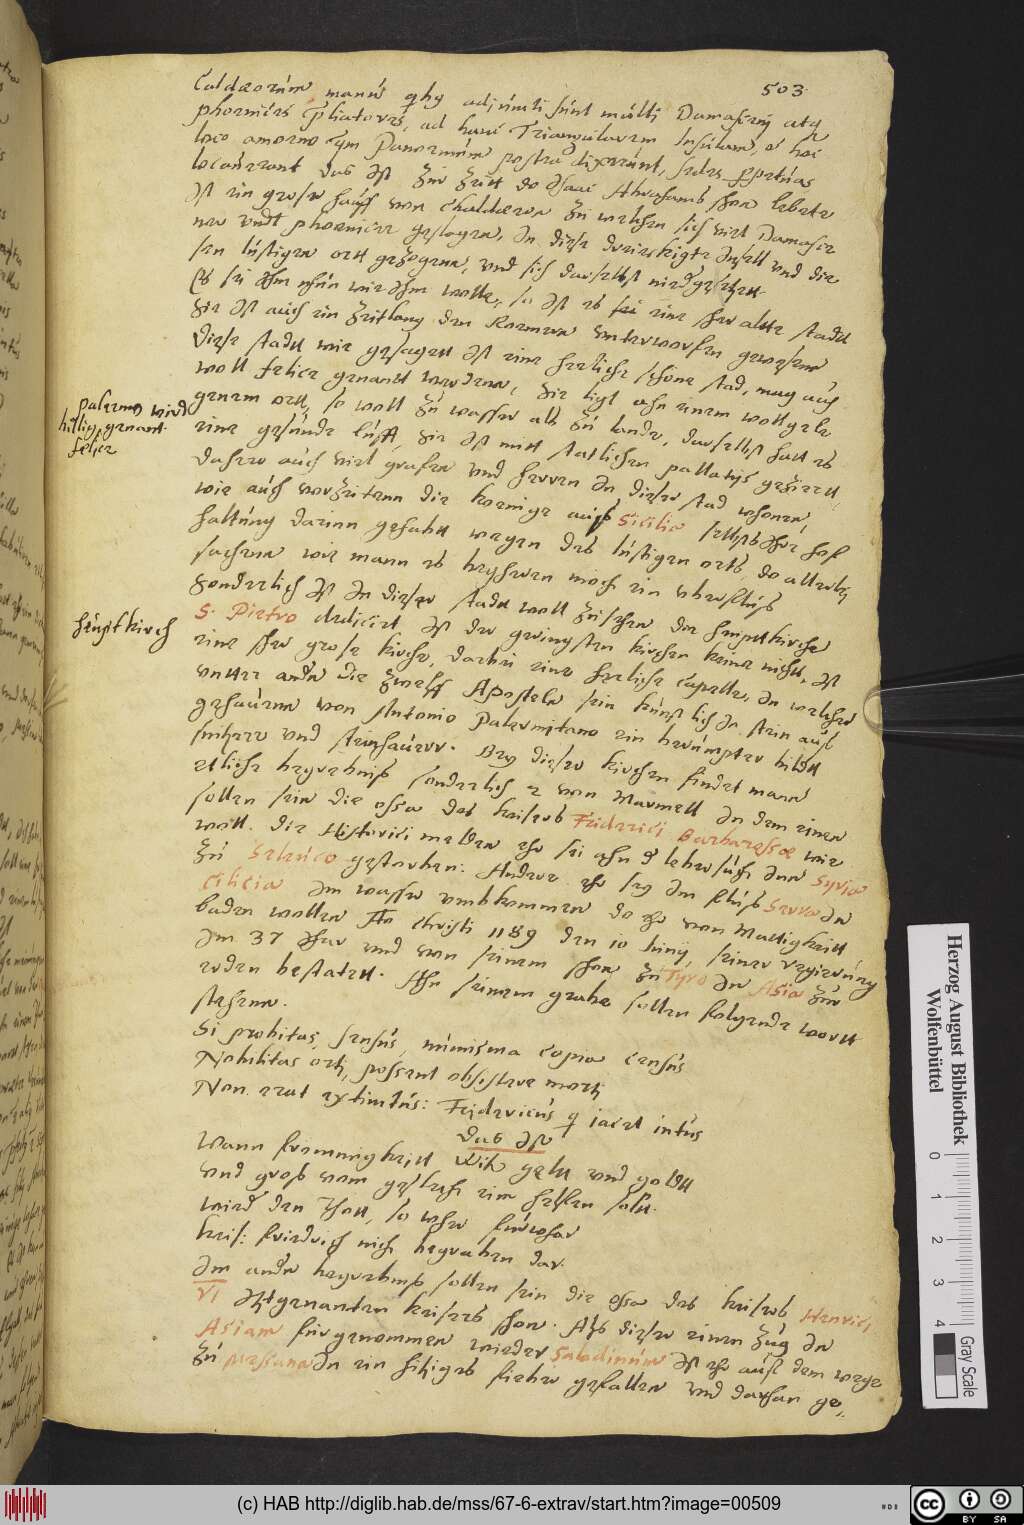 503
Caldæorum manus quibus adjuncti sunt multi Damasceni atque
phoenices, ad hanc Triangularem Insulam, e hoc
loco amoeno quem Panormum postea dixerunt, sedes perpetuas
locauerant das Ist zur Zeitt do Isaac Abrahams shon lebete
Ist ein groser hauff von Chaldæern zu welchen sich viel Damasce
ner undt phoenicier geslagen, In diese dreieckigte Insell und die
sen lustigen ortt gezogenn, und sich daselbst nieder gesetzett
Es sei Ihm nhun wie Ihm wolle, so Ist es sei eine sher altte stadtt
sie Ist auch ein Zeitlang den Roemern unterworfen gewesenn
Diese stadtt wie gesagett Ist eine herliche schöne stad, mag auch
woll felice genantt werdenn, sie ligt ahn einem wollgele
genem ortt, so woll zu wasser als zu lande, daselbst hatt es
eine gesunde lufft, sie Ist mitt statlichen pallatijs gezierett
Daherr auch viel grafen und herren In dieser stad whonen,
wie auch vorzeitenn die koenige auss Sicilia selbst Ihre hof
haltung darinn gehabtt wegen des lustigen orts, do allerley
sachenn wie mann es begheren moch ein uberflus
Palermo wird
billig genant
felice
Sonderlich Ist In dieser stadtt woll zusehen die heuptkirche
S. Pietro dedicirt Ist der geringsten kirchen keine nichtt, Ist
eine sher grose kirche, darbei eine herliche Capelle, In welcher
unter andern die zwelff Aposteln sein kunstlich In stein auss
gehauenn von Antonio Palermitano ein berumpter bildtt
snitzerr und steinhauerr. Bey dieser kirchen findet mann
etliche begrebniss sonderlich 2 von Marmell In dem einen
sollen sein die ossa des keisers Friderici Barbarossæ wie
woll die Historici melden ehr sei ahn der lebersucht Inn Syria
zu Seleuco gestorben: Andere ehr sey Im fluss Serra In
Cilicia Im wasser umbkommen do ehr von Mattigkeitt
baden wollen Ao Christi 1189 den 10 Iunij, seiner regierung
Im 37 Ihar und von seinem shon zu Tyro In Asia zur
erden bestatett. Ahn seinem grabe sollen folgende wortt
stehenn.
heuptkirch
Si probitas, sensus, numisma copia census
Nobilitas orti, possent obsistere morti
Non erat extinctus: Fridericus qui iacet intus
Das Ist
Wann frommigkeitt Witz geltt und goldtt
und gross vom geslecht eim helfen soltt
wieder den Thott, so wher furwhar
keis: friedrich nich begraben dar.
Im andern begrebniss sollen sein die ossa des keisers Henrici
VI Itzgenanten keisers shon. Als dieser einen Zug In
Asiam furgenommen wieder Saladinum Ist ehr auff dem wege
zu Messana In ein hitziges fieber gefallen und darhan ge„
Herzog August Bibliothek
Wolfenbüttel
0 1 2 3 4
Gray Scale
(c) HAB http://diglib.hab.de/mss/67-6-extrav/start.htm?image=00509
cc BY SA